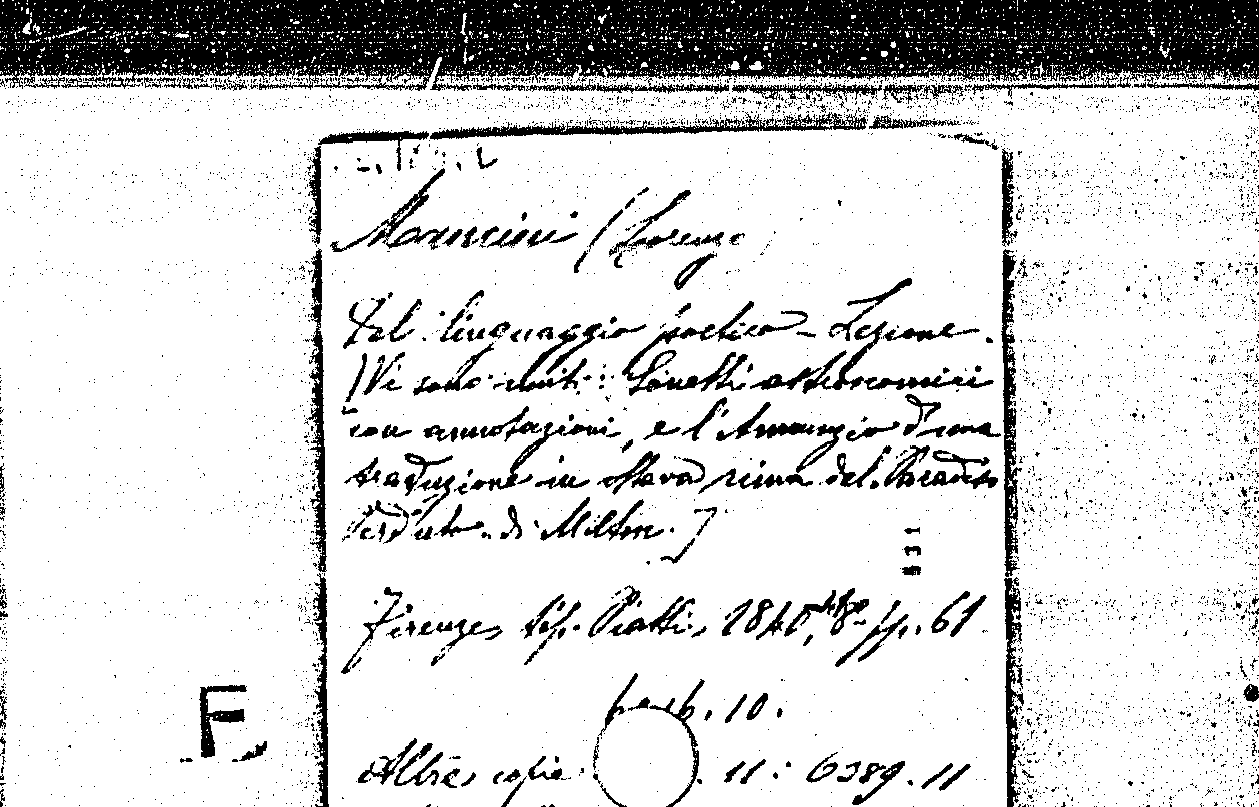 Mancini (Lorenzo)
Del linguaggio poetico – Lezione.
[Vi sono uniti: Sonetti astronomici
con annotazioni, e l'Annunzio d'una
traduzione in ottava rima del Paradiso
Perduto di Milton.]
Firenze, tip. Piatti, 1840, 8º pp. 61
10.
F
Altre copie 11: 6389.11